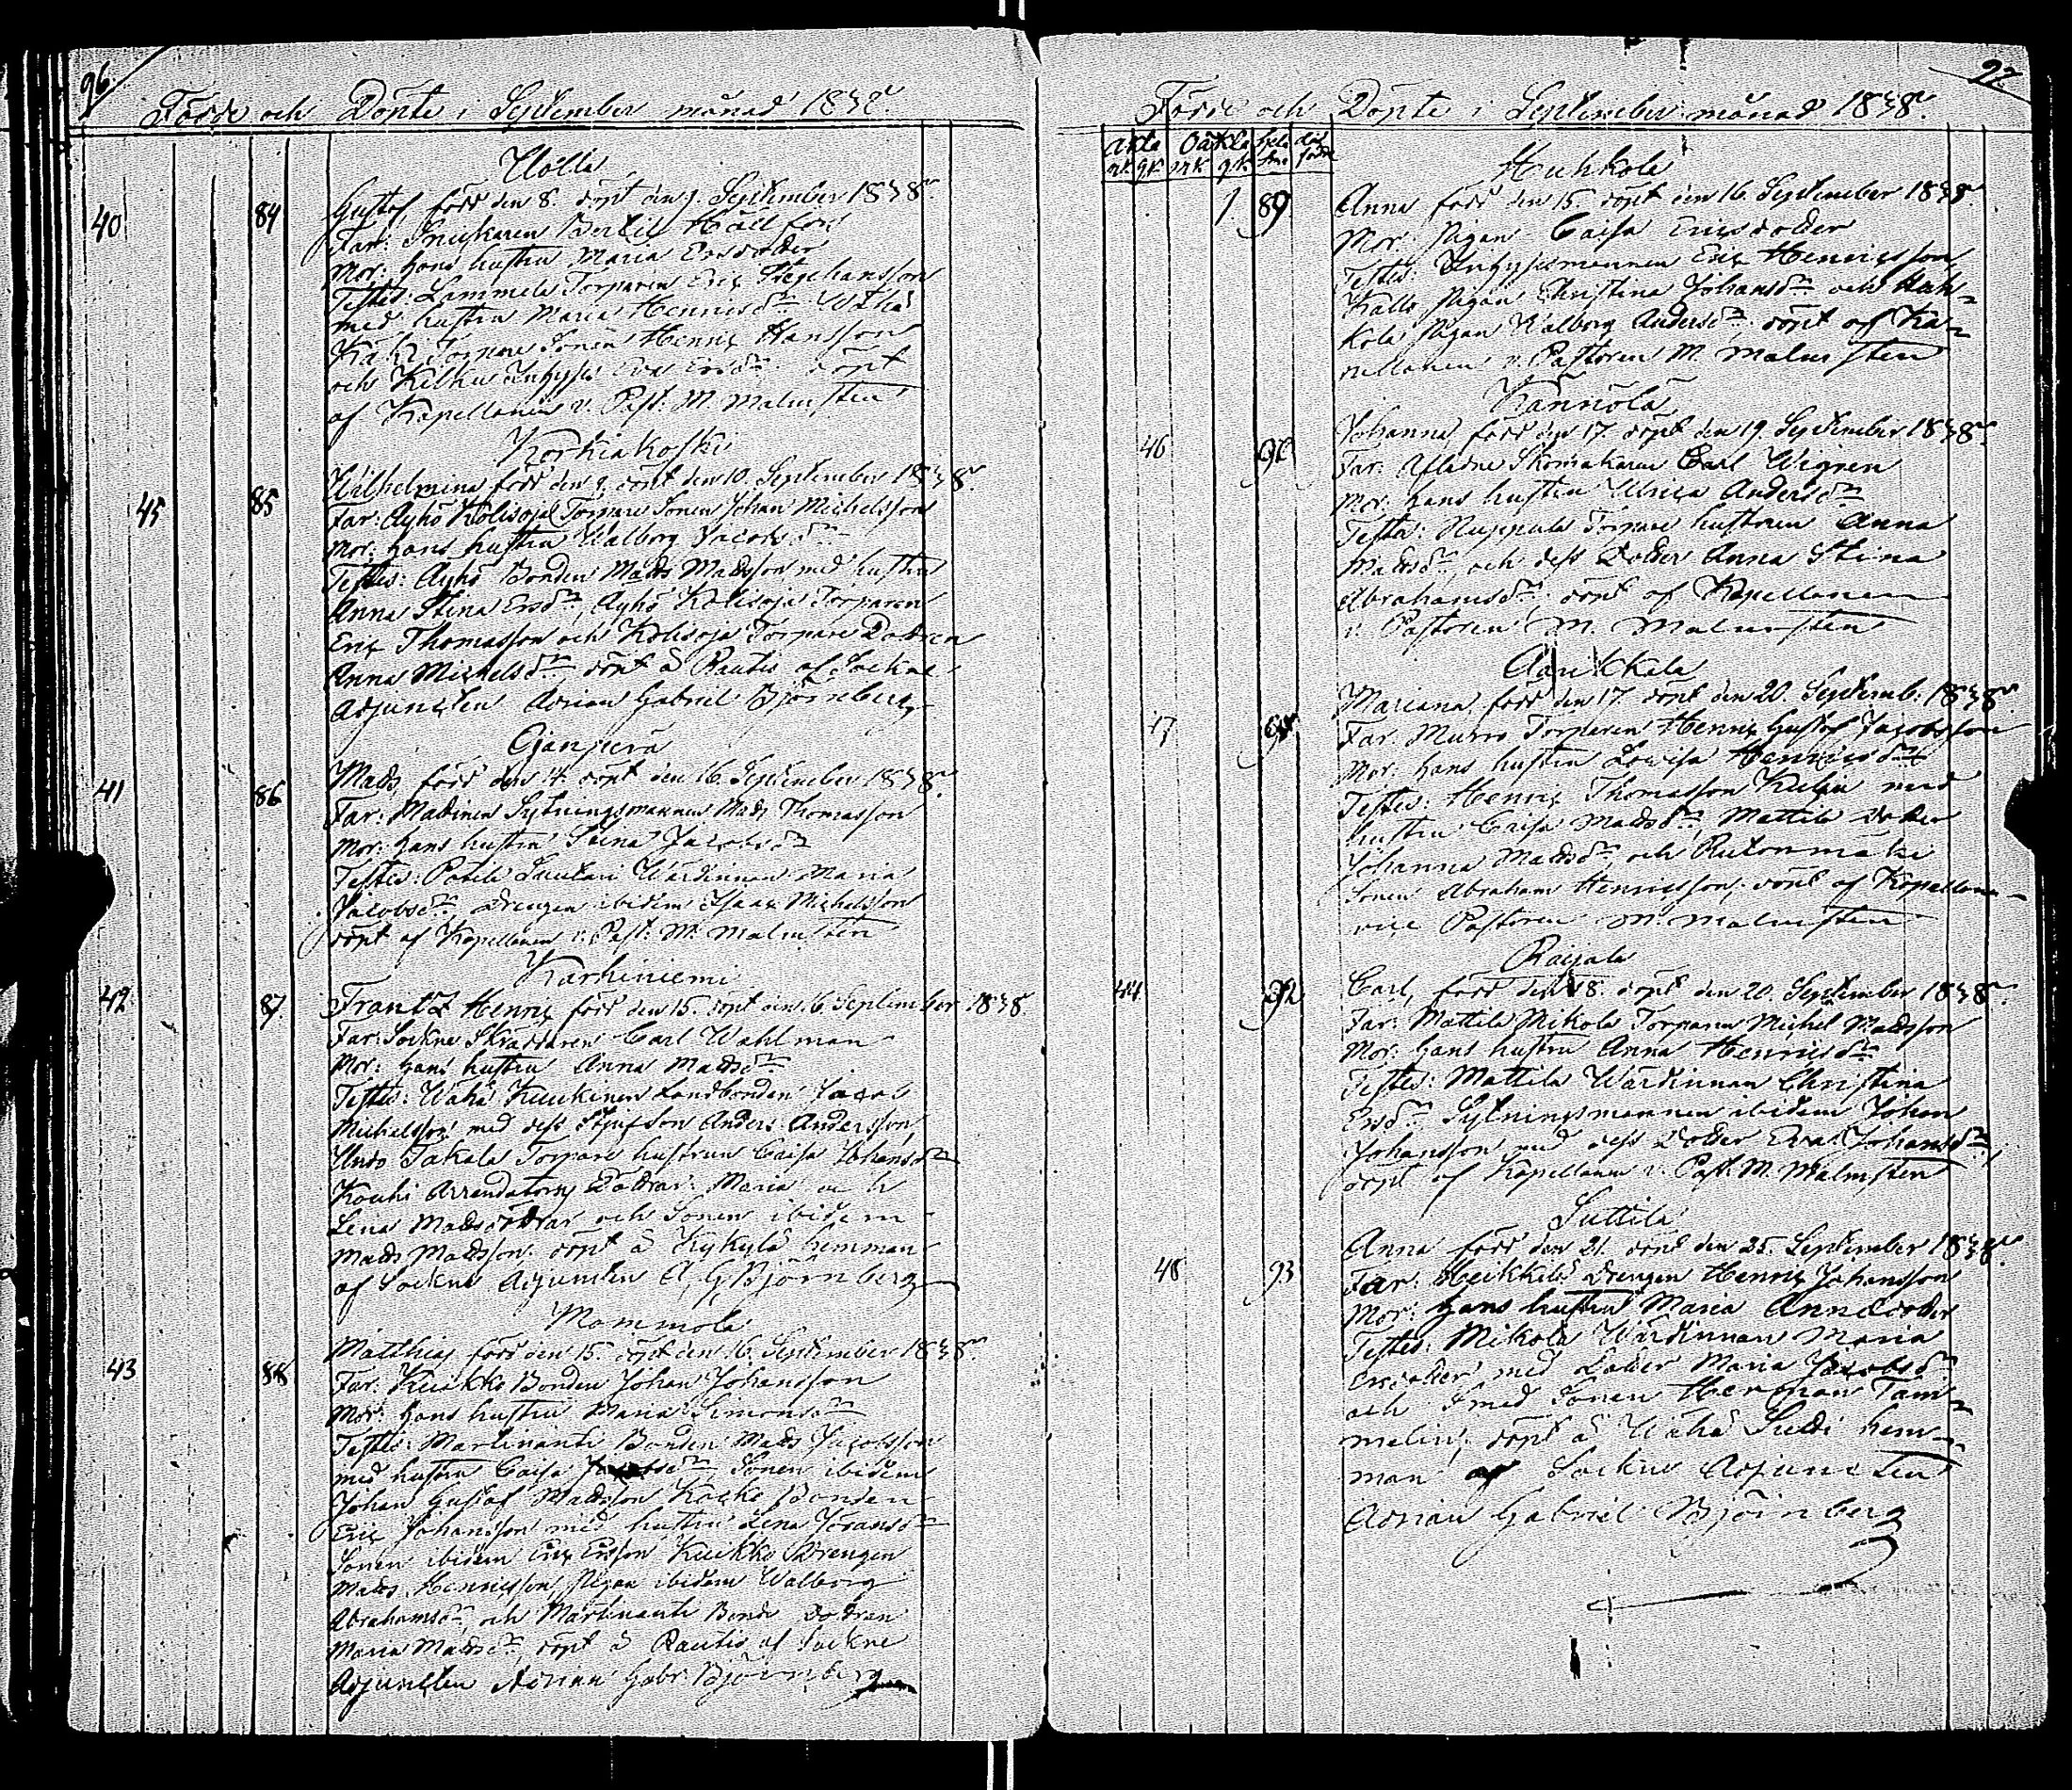 96.
Födde och Döpte i September månad 1838.
40 84 Gustaf, född den 8. döpt den 9. September 1838.
Far: Snickaren Bertil Häll fors
Mor: hans hustru Maria Ersdotter
Testes: Lammela Torparen Eric Stephansson
med hustru Maria Henricsdr Wähä
Käki Torpare Sonen Henric Hansson
och Kilkku Inhyses Eva Ersdr döpt
af Kapellanen v. Past. M. Malmsten
Korkiakoski
Wilhelmina född den 9. döpt den 10. September 1838.
45 85 Far: Äyhö Kolisoja Torpare Sonen Johan Michelsson
Mor: hans hustru Walborg Jacobsdr
Testes: Äyhö Bonden Mads Madsson med hustru
Anna Stina Ersdr, Äyhö Kolisoja Torparen
Eric Thomasson och Kolisoja Torpare Dottren
Anna Michelsdr, döpt å Rautis af Sockne
Adjuncten Adrian Gabriel Björneberg
Ojanperä
Mads, född den 14. döpt den 16. September 1838.
41 86 Far: Madinen Sytningsmannen Mads Thomasson
Mor: hans hustru Stina Jacobsdr
Testes: Potila Luutari Wärdinnan Maria
Jacobsdr drengen ibidem Isaac Michelsson
döpt af Kapellanen v. Past. M. Malmsten
Karhiniemi
42 87. Frantz Henric född den 15. döpt den 16. September 1838.
Far: Sockne Skräddaren Carl Wahlman
Mor: hans hustru Anna Madsdr
Testes: Wähä Kuukinen Landbonden Jacob
Michelsson med dess Stjufson Anders Andersson,
Uuso Takala Torpare hustrun Caisa Johansdr
Kouhi Arrendatorns Döttrar: Maria och
Lena Madsdöttrar och Sonen ibidem
Mads Madsson. döpt å Kykylä hemman
af Sockne Adjuncten A. G. Björnberg
Mommola
Matthias född den 15. döpt den 16. September 1838.
43 88 Far: Kuikko Bonden Johan Johansson
Mor: hans hustru Maria Simonsdr
Testes: Martinanti Bonden Mads Jacobsson
med hustru Caisa Sonen ibidem
Johan Gustaf Madsson Kocko Bonden
Eric Johansson med hustru Lena Göransdr
Sonen ibidem Eric Ersson Kuikko Drengen
Mads Henricsson, Pigan ibidem Walborg
Abrahamsdr, och Martinanti Bonde Dottren
Maria Madsdr, döpt å Rautis af Sockne
Adjuncten Adrian Gabr: Björnberg
97
Födde och Döpte i September månad 1838.
äkta oäkta hela död
mk qk mk qk födde
Huhkola
1. 89. Anna född den 15. döpt den 16. September 1838.
Mor: Pigan Caisa Ericsdotter
Testes: Inhysesmannen Eric Henricsson
Kallo Pigan Christina Johansdr och Huh-
kola Pigan Walborg Andersdr. döpt af Ka-
pellanen v. Pastoren M. Malmsten
Kännölä
Johanna, född den 17. döpt den 19. September 1838.
46 90 Far: Afledne Skomakaren Carl Wigren
Mor: hans hustru Ulrica Andersdr
Testes: Nuppula Torpare hustrun Anna
Madsdr, och dess Dotter Anna Stina
Abrahamsdr. döpt af Kapellanen
v. Pastoren M. Malmsten
Mariana, född den 17. döpt den 20. Septemb: 1838.
47 91 Far: Murro Torparen Henric Gustaf Jacobsson
Mor: hans hustru Lovisa Henricsdr
Testes: Henric Thomasson Kulju med
hustru Caisa Madsdr, Mattila dotter
Johanna Madsdr, och Rutonmäki
Sonen Abraham Henricsson; döpt af Kapellanen
vice Pastoren M. Malmsten
Raijala
44. 92 Carl, född den 18. döpt den 20. September 1838.
Far: Mattila Mikola Torparen Michel Madsson
Mor: hans hustru Anna Henricsdr
Testes: Mattila Wärdinnan Christina
Ersdr Sytningsmannen ibidem Johan
Johansson med dess Dotter Eva Johansdr,
döpt af Kapellanen v. Past. M. Malmsten
Suttila
Anna född den 21. döpt den 25. September 1838.
48 93 Far: Heikkilä Drengen Henric Johansson
Mor: hans hustru Maria Annædotter
Testes: Mikola Wärdinnan Maria
Ersdotter, med Dotter Maria Jacobsdr
och Smed Sonen Herman Tam-
melin; döpt å Wähä Sudi hem-
man af Sockne Adjuncten
Adrian Gabriel Björnberg